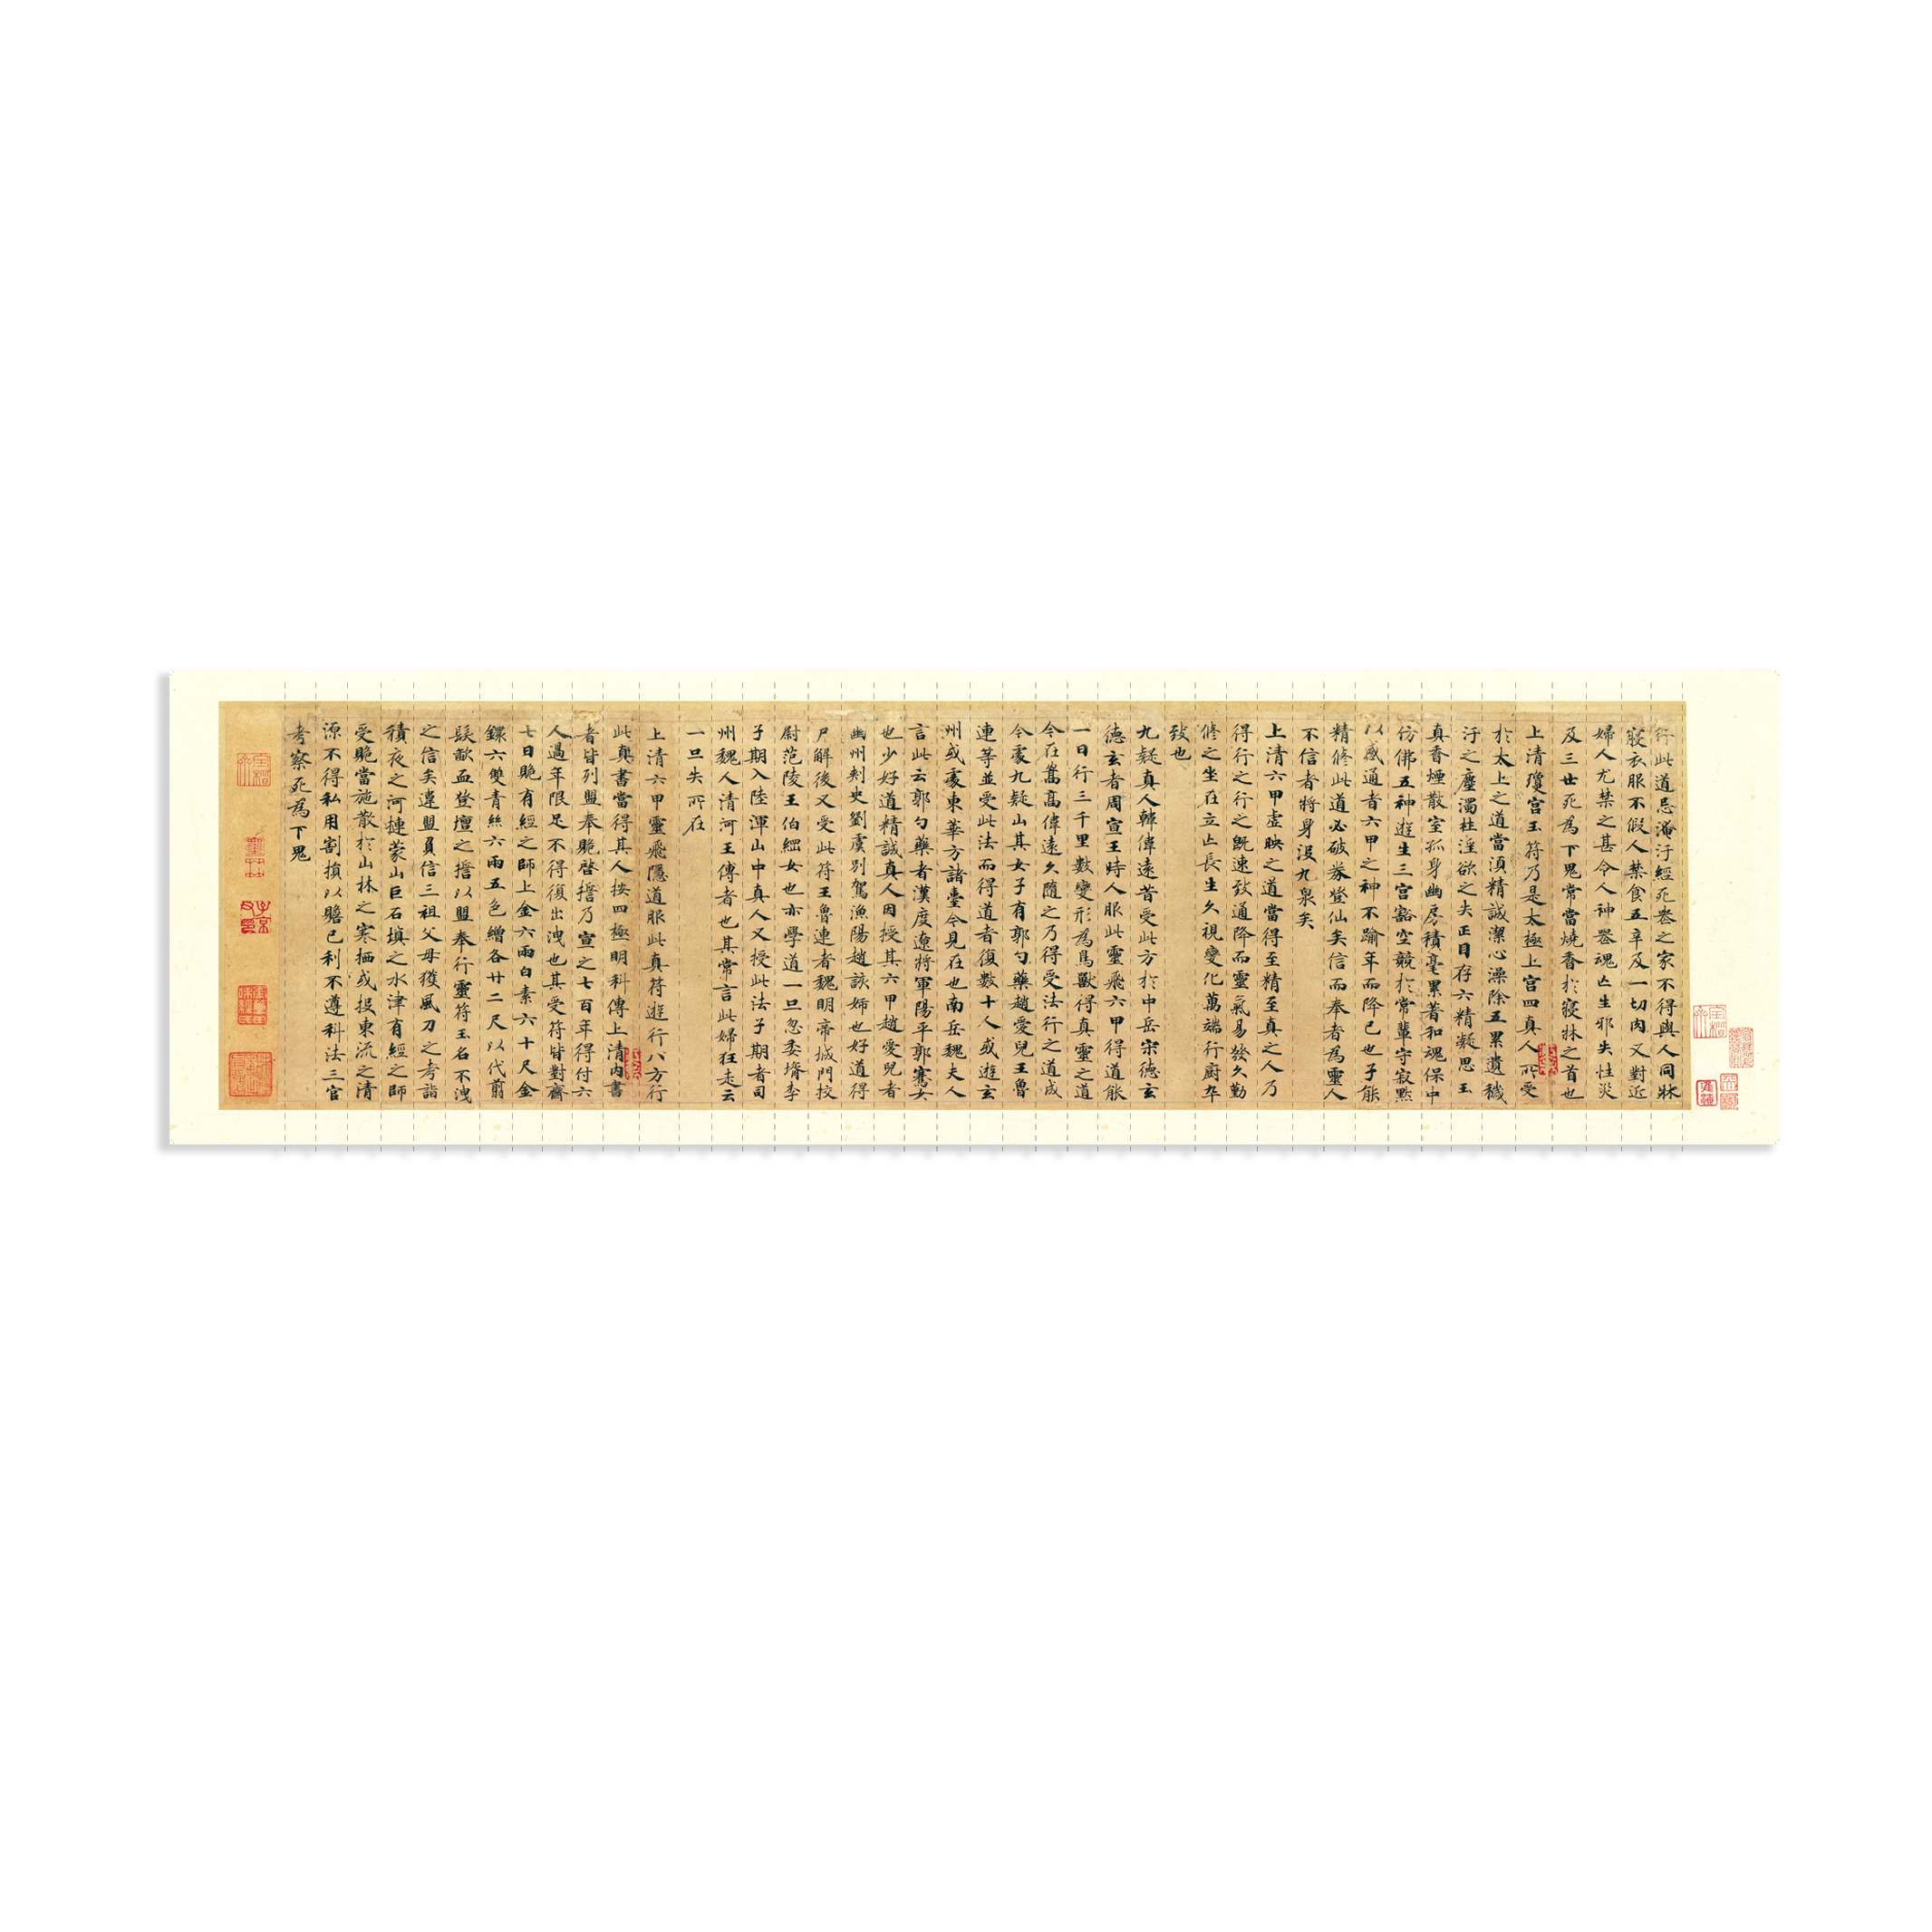 行此道忌淹汙經死喪之家不得與人同牀
寢衣服不假人禁食五辛及一切肉又對近
婦人尤禁之甚令人神喪魂亡生邪失性災
及三世死為下鬼常當燒香於寢牀之首也
上清瓊宮玉符乃是太極上宮四真人所受
於太上之道當須精誠潔心澡除五累遺穢
汙之塵濁杜淫欲之失正目存六精凝思玉
真香煙散室孤身幽房積毫累著和魂保中
仿佛五神遊生三宮豁空競於常輩守寂默
以感通者六甲之神不踰年而降已也子能
精修此道必破券登仙矣信而奉者為靈人
不信者將身沒九泉矣
上清六甲虛映之道當得至精至真之人乃
得行之行之既速致通降而靈氣易發久勤
修之坐在立亡長生久視變化萬端行廚卒
致也
九疑真人韓偉遠昔受此方於中岳宋德玄
德玄者周宣王時人服此靈飛六甲得道能
一日行三千里數變形為鳥獸得真靈之道
今在嵩高偉遠久隨之乃得受法行之道成
今處九疑山其女子有郭勺藥趙愛兒王魯
連等並受此法而得道者復數十人或遊玄
州或處東華方諸臺今見在也南岳魏夫人
言此云郭勺藥者漢度遼將軍陽平郭騫女
也少好道精誠真人因授其六甲趙愛兒者
幽州刺史劉虞別駕漁陽趙該姊也好道得
尸解後又受此符王魯連者魏明帝城門校
尉范陵王伯綱女也亦學道一旦忽委壻李
子期入陸渾山中真人又授此法子期者司
州魏人清河王傳者也其常言此婦狂走云
一旦失所在
上清六甲靈飛隱道服此真符遊行八方行
此真書當得其人按四極明科傳上清內書
者皆列盟奉貺啓誓乃宣之七百年得付六
人過年限足不得復出洩也其受符皆對齋
七日貺有經之師上金六兩白素六十尺金
鐶六雙青絲六兩五色繒各廿二尺以代翦
髮歃血登壇之誓以盟奉行靈符玉名不洩
之信矣違盟負信三祖父母獲風刀之考詣
積夜之河摙蒙山巨石填之水津有經之師
受貺當施散於山林之寒栖或投東流之清
源不得私用割損以贍己利不遵科法三官
考察死為下鬼